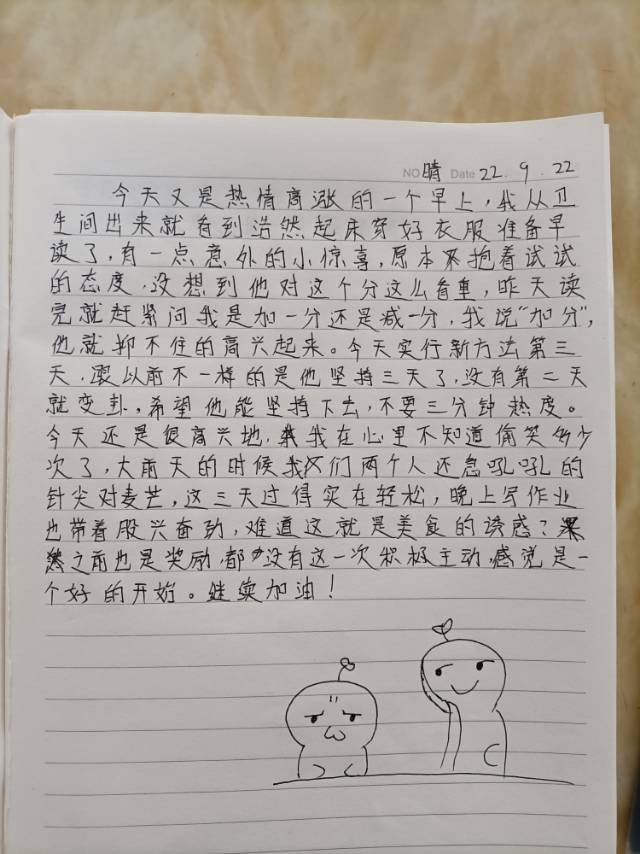 NO 晴 Date 22.9.22
今天又是热情高涨的一个早上，我从卫
生间出来就看到浩然起床穿好衣服准备早
读了，有一点意外的小惊喜，原本不抱着试试
的态度，没想到他对这个分这么看重，昨天读
完就赶紧问我是加一分还是减一分，我说“加分”，
他就抑不住的高兴起来。今天实行新方法第三
天，跟以前不一样的是他坚持三天了，没有第二天
就变卦，希望他能坚持下去，不要三分钟热度。
今天还是很高兴地，我在心里不知道偷笑多少
次了，大前天的时候我们两个人还急吼吼的
针尖对麦芒，这三天过得实在轻松，晚上写作业
也带着股兴奋劲，难道这就是美食的诱惑？虽
然之前也是奖励，都没有这一次积极主动，感觉是一
个好的开始。继续加油！